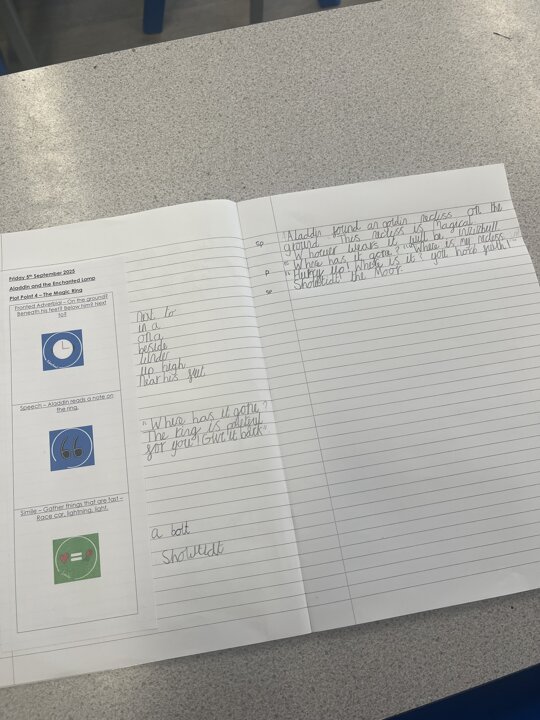 Friday 5th September 2025
Aladdin and the Enchanted Lamp
Plot Point 4 – The Magic Ring
Fronted Adverbial – On the ground? Beneath his feet? Below him? Next to?
next to
in a
on a
beside
under
up high
near his feet
Speech – Aladdin reads a note on the ring.
"Where has it gone?
The ring is
for you! Give it back"
Simile – Gather things that are fast – Race car, lightning, light.
a bolt
sp
p
sp
Aladdin found an goldin necless on the
ground. This necless is magical
W hoever wears it will be
"Where has it gone?" "Where is my necless
"Hurry up! Where is it? you
the Moor.